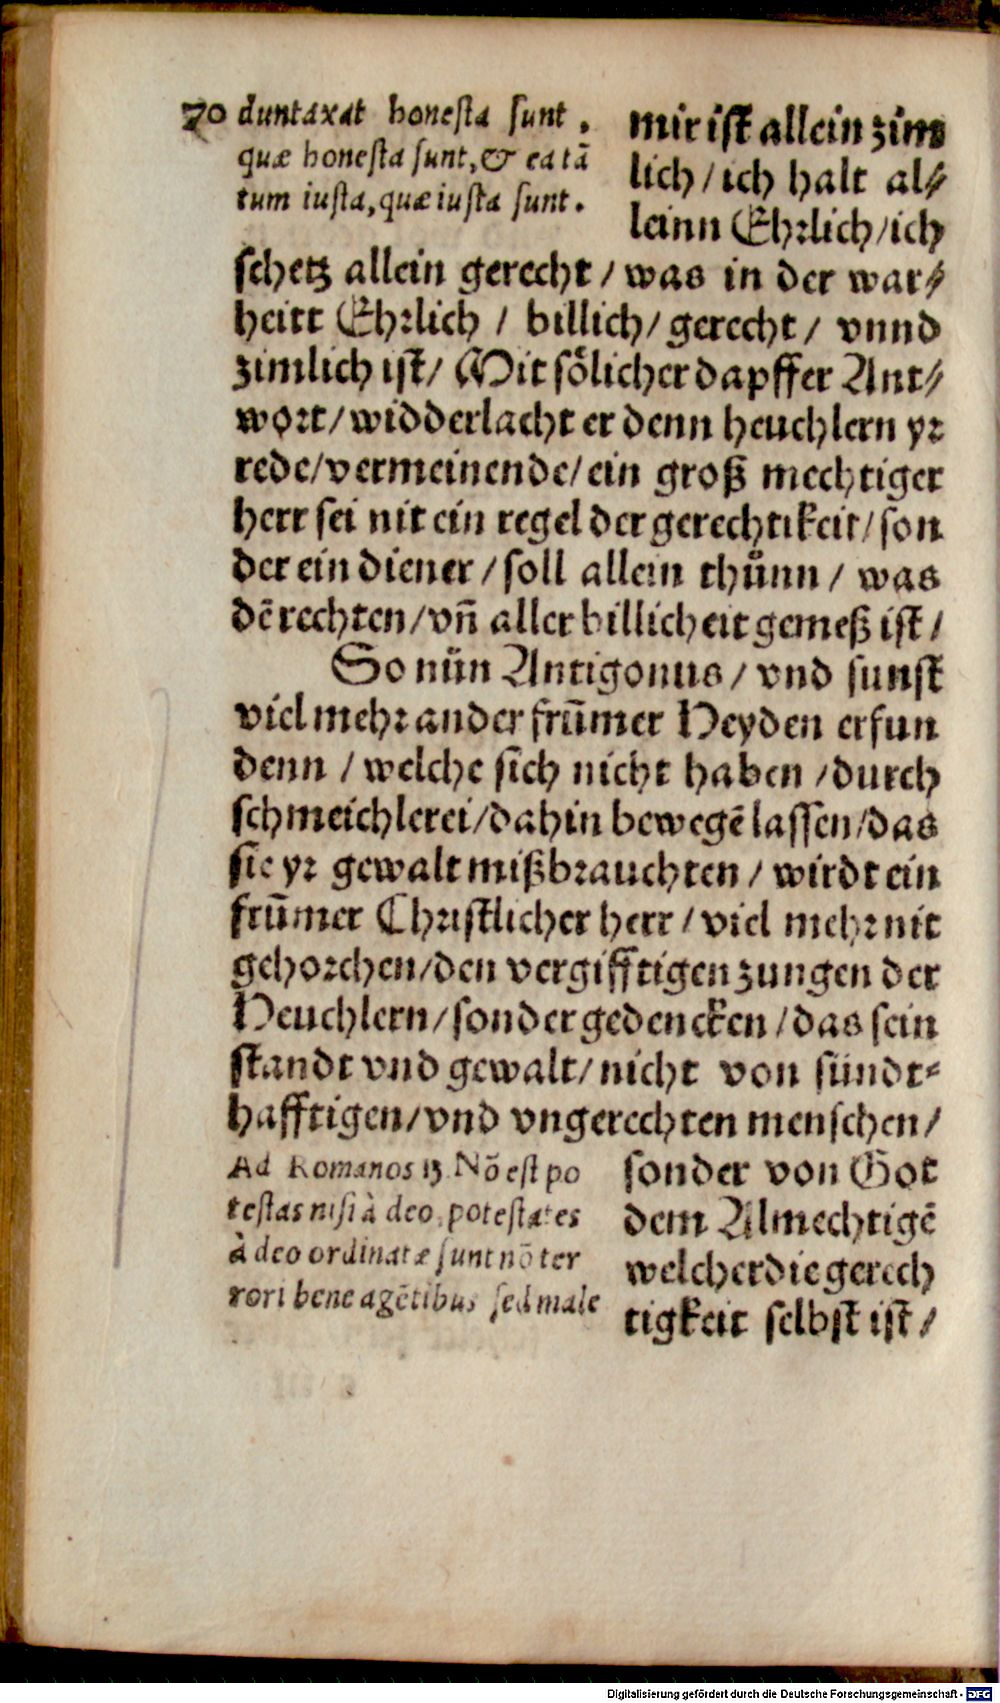 70 duntaxat honesta sunt.
quæ honesta sunt, & ea tā
tum iusta, quæ iusta sunt.
mir ist allein zim
lich / ich halt al⸗
leinn Ehrlich / ich
schetz allein gerecht / was in der war⸗
heitt Ehrlich / billich / gerecht / vnnd
zimlich ist / Mit soͤlicher dapffer Ant⸗
wort / widderlacht er denn heuchlern yr
rede / vermeinende / ein groß mechtiger
herr sei nit ein regel der gerechtikeit / son
der ein diener / soll allein thuͦnn / was
dē rechten / vñ aller billicheit gemeß ist /
So nün Antigonus / vnd sunst
viel mehr ander frūmer Heyden erfun
denn / welche sich nicht haben / durch
schmeichlerei / dahin bewegē lassen / das
sie yr gewalt mißbrauchten / wirdt ein
frūmer Christlicher herr / viel mehr nit
gehorchen / den vergifftigen zungen der
Heuchlern / sonder gedencken / das sein
standt vnd gewalt / nicht von sündt⸗
hafftigen / vnd vngerechten menschen /
Ad Romanos 13. Nō est po
testas nisi à deo, potestates
à deo ordinatæ sunt nō ter
rori bene agētibus sed male
sonder von Got
dem Almechtigē
welcher die gerech
tigkeit selbst ist /
Digitalisierung gefördert durch die Deutsche Forschungsgemeinschaft - DFG